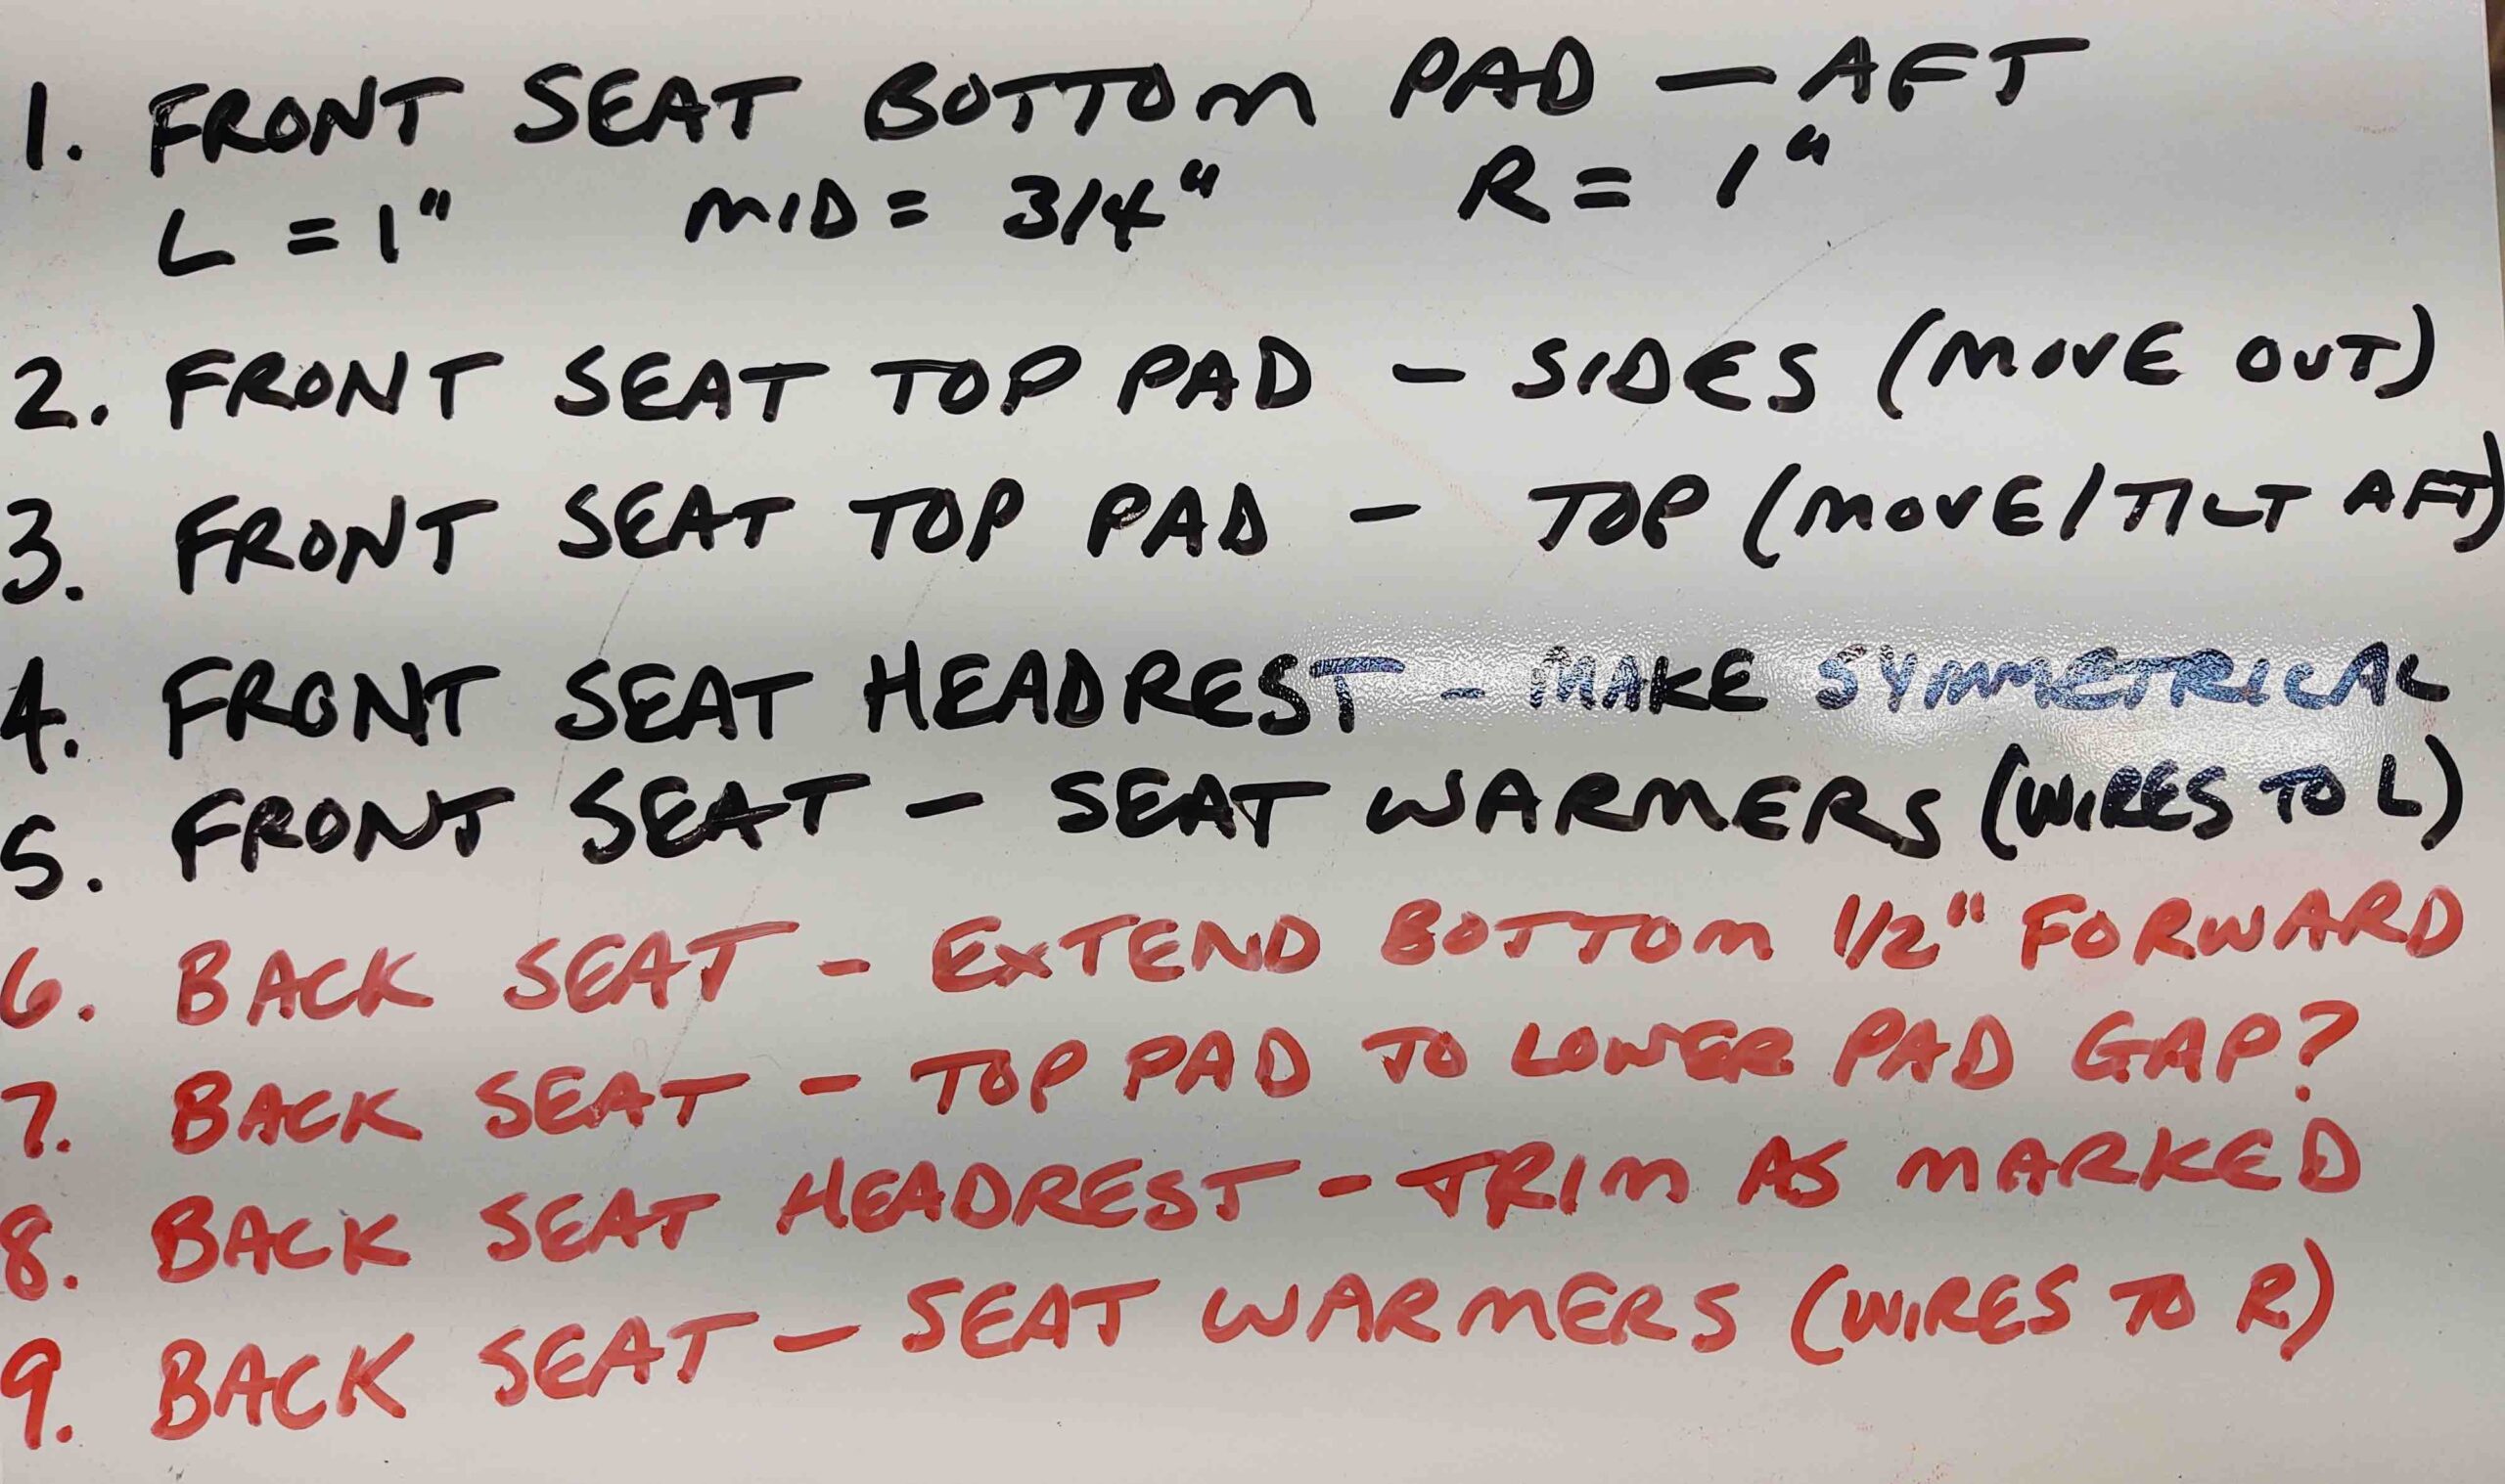 1. FRONT SEAT BOTTOM PAD - AFT
L = 1" MID = 3/4" R = 1"
2. FRONT SEAT TOP PAD - SIDES (MOVE OUT)
3. FRONT SEAT TOP PAD - TOP (MOVE/TILT AFT)
4. FRONT SEAT HEADREST - MAKE SYMMETRICAL
5. FRONT SEAT - SEAT WARMERS (WIRES TO L)
6. BACK SEAT - EXTEND BOTTOM 1/2" FORWARD
7. BACK SEAT - TOP PAD TO LOWER PAD GAP?
8. BACK SEAT HEADREST - TRIM AS MARKED
9. BACK SEAT - SEAT WARMERS (WIRES TO R)